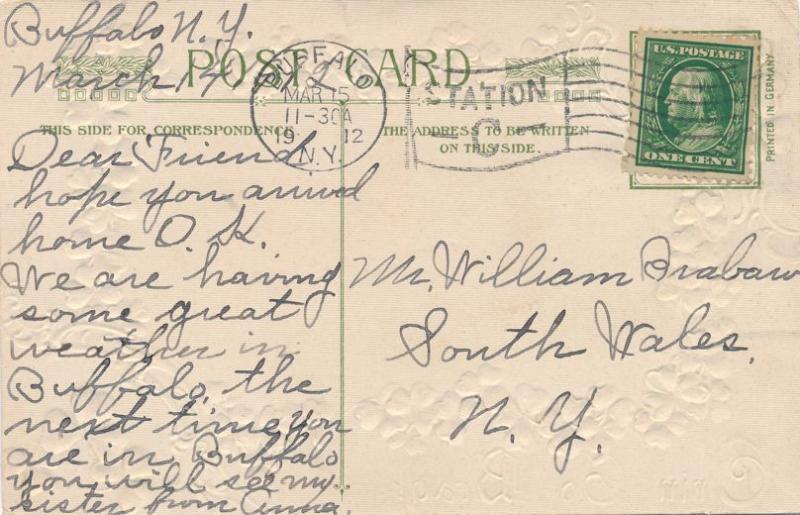 Buffalo N.Y.
March 14, 1912
POST CARD
BUFFALO
MAR 15
11-30A
19 12
N.Y.
STATION
-C-
U.S. POSTAGE
ONE CENT
PRINTED IN GERMANY
THIS SIDE FOR CORRESPONDENCE
THE ADDRESS TO BE WRITTEN
ON THIS SIDE.
Dear Friend
hope you arrived
home O.K.
We are having
some great
weather in
Buffalo, the
next time you
are in Buffalo
you will see my
sister from Anna.
Mr. William Brabaw
South Wales,
N.Y.